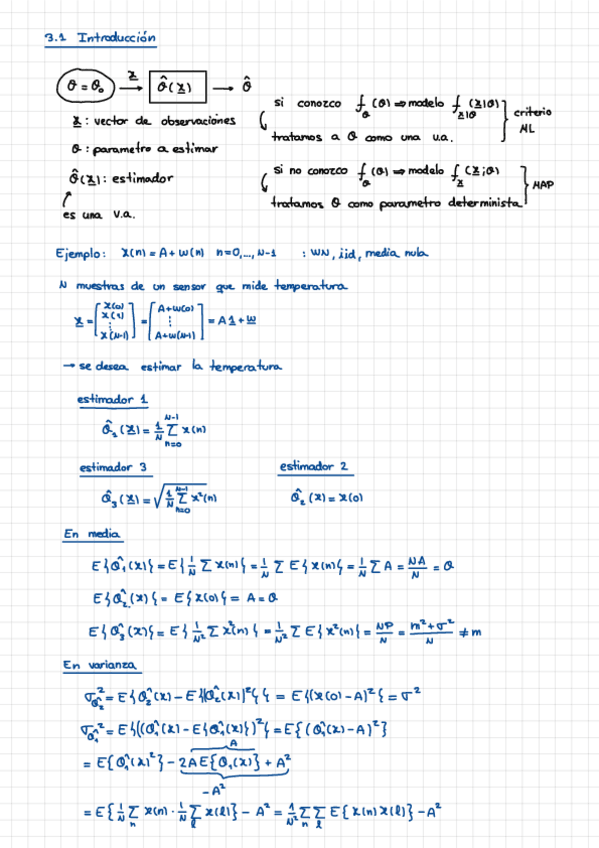 3.1 Introducción
θ = θ₀ → x → θ̂(x) → θ̂
x : vector de observaciones
θ : parametro a estimar
θ̂(x) : estimador
es una v.a.
si conozco f_θ(θ) ⇒ modelo f_x|θ(x|θ)
tratamos a θ como una v.a.
criterio
ML
si no conozco f_θ(θ) ⇒ modelo f_x(x;θ)
tratamos θ como parametro determinista
MAP
Ejemplo: x(n) = A + w(n) n=0,..., N-1 : WN, iid, media nula
N muestras de un sensor que mide temperatura
x = [x(0) x(1) ⋮ x(N-1)] = [A+w(0) ⋮ A+w(N-1)] = A1 + w
→ se desea estimar la temperatura
estimador 1
θ̂₁(x) = 1/N Σ_{n=0}^{N-1} x(n)
estimador 3 estimador 2
θ̂₃(x) = √(1/N Σ_{n=0}^{N-1} x²(n)) θ̂₂(x) = x(0)
En media
E{θ̂₁(x)} = E{1/N Σ x(n)} = 1/N Σ E{x(n)} = 1/N Σ A = NA/N = θ
E{θ̂₂(x)} = E{x(0)} = A = θ
E{θ̂₃(x)} = E{1/N² Σ x²(n)} = 1/N² Σ E{x²(n)} = NP/N = m²+σ²/N ≠ m
En varianza
σ²_θ̂₂ = E{θ̂₂(x) - E{|θ̂₂(x)|²}} = E{(x(0)-A)²} = σ²
σ²_θ̂₁ = E{((θ̂₁(x) - E{θ̂₁(x)})²} = E{(θ̂₁(x)-A)²}
A
= E{θ̂₁(x)²} - 2AE{θ₁(x)} + A²
-A²
= E{1/N Σ_n x(n) · 1/N Σ_l x(l)} - A² = 1/N² Σ_n Σ_l E{x(n)x(l)} - A²